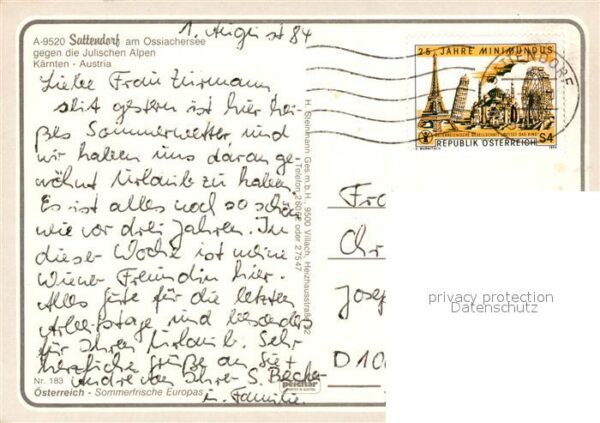 1. August 84
A-9520 Sattendorf am Ossiachersee
gegen die Julischen Alpen
Kärnten - Austria
Liebe Frau
seit gestern ist hier hei-
ßes Sommerwetter und
wir haben uns daran ge-
wöhnt Urlaub zu haben.
Es ist alles noch so schön
wie vor drei Jahren. In
dieser Woche ist meine
Wiener Freundin hier.
Alles Gute für die letzten
Arbeitstage und besonders
für Ihren Urlaub. Sehr
herzliche Grüße an Sie +
André von Ihrer S. Becker
u. Familie.
Nr. 183
Österreich - Sommerfrische Europas
H. Steinmann Ges.m.b.H. 9500 Villach, Heizhausstraße
Telefon oder 27547
25 JAHRE MINIMUNDUS
ÖSTERREICHISCHE GESELLSCHAFT RETTET DAS KIND
REPUBLIK ÖSTERREICH S4
Fra
Chr
Josep
D 10
privacy protection
Datenschutz